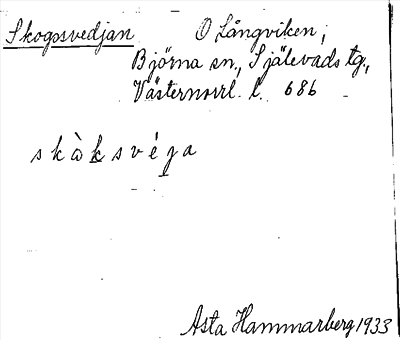 Skogssvedjan O Långviken,
Björna sn., Själevads tg.,
Västernorrl. l. 686
skàksvéja
Asta Hammarberg 1933